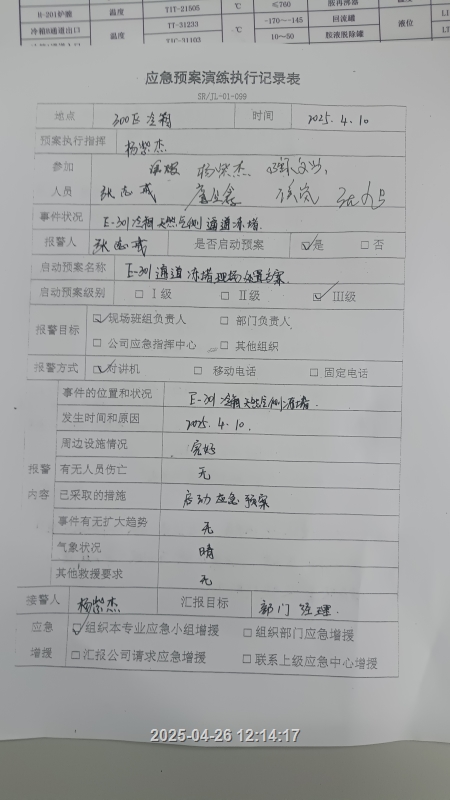 H-201炉膛 温度 TIT-21505 ℃ ≤760
冷箱B通道出口 温度 TT-31233 ℃ -170~-145 回流罐 液位
TIC-31103 10~50 胺液脱除罐
应急预案演练执行记录表
SR/JL-01-099
地点 300区冷箱 时间 2025.4.10
预案执行指挥 杨紫杰
参加 杨紫杰
人员 张志成
事件状况 E-301冷箱天然气侧通道冻堵
报警人 张志成 是否启动预案 ☑是 □否
启动预案名称 E-301通道冻堵现场处置方案.
启动预案级别 □Ⅰ级 □Ⅱ级 ☑Ⅲ级
报警目标 ☑现场班组负责人 □部门负责人
□公司应急指挥中心 □其他组织
报警方式 ☑对讲机 □移动电话 □固定电话
报警内容 事件的位置和状况 E-301冷箱天然气侧冻堵.
发生时间和原因 2025.4.10.
周边设施情况 完好
有无人员伤亡 无
已采取的措施 启动应急预案
事件有无扩大趋势 无
气象状况 晴
其他救援要求 无
接警人 杨紫杰 汇报目标 部门经理.
应急 ☑组织本专业应急小组增援 □组织部门应急增援
增援 □汇报公司请求应急增援 □联系上级应急中心增援
2025-04-26 12:14:17